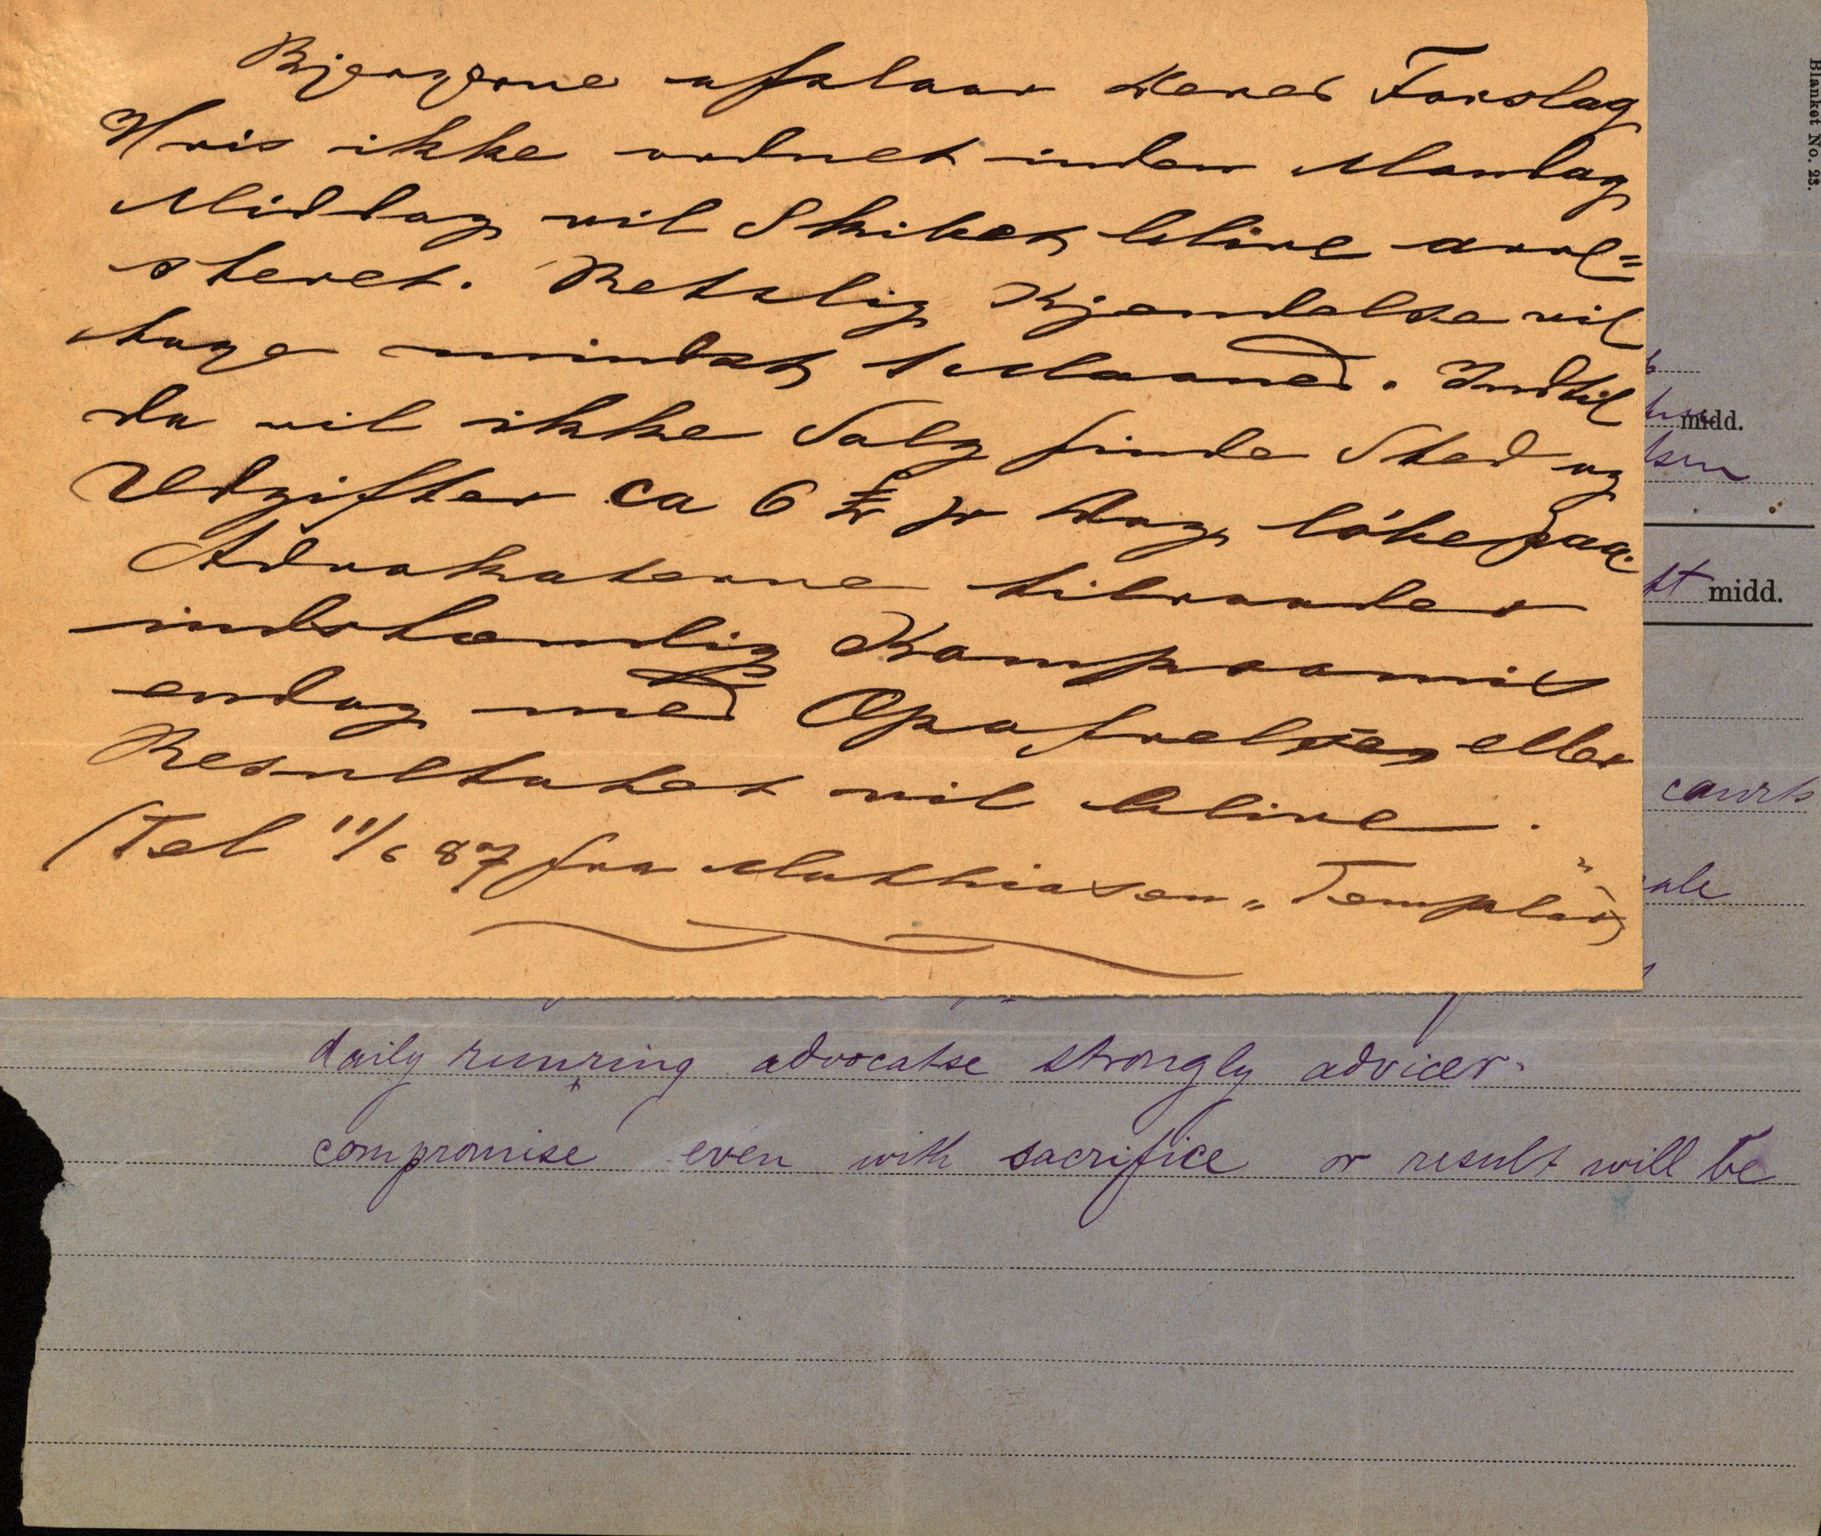 Bjergerne afslaar deres Forslag
Hvis ikke ordnet inden Mandag
Middag vil Skibet blive arre=
steret. Retslig Kjendelse vil
tage mindst 1 Maaned. Indtil
da vil ikke Salg finde Sted og
Udgifter ca 6 £ pr Dag, löbe paa.
Advokaterne tilraader
indstændig Kompromis
endog med Opofrelse, eller
Resultatet vil blive .
(Tel 11/6 87 fra Mathiasen „Templar”)
Blanket No. 23.
midd.
midd.
courts
daily running advocatse strongly advicer
compromise even with sacrifice or result will be